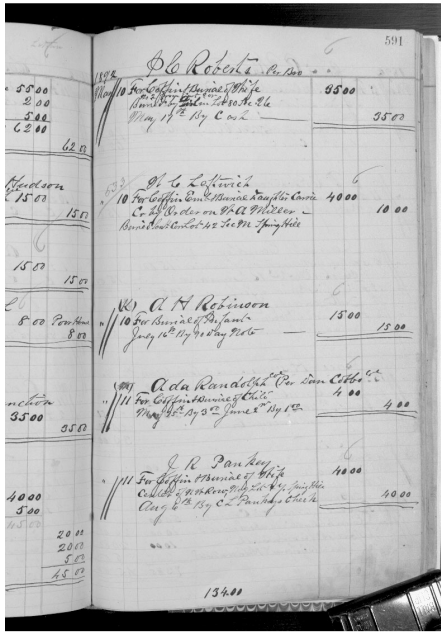 55 00
2 00
5 00
62 00
62 00
Hudson
15 00
15 00
15 00
15 00
8 00 Poor House
8 00
nction
35 00
35 00
40 00
5 00
45 00
20 00
20 00
5 00
45 00
591
P C Roberts Per Bro
1892
May 10 For Coffin & Burial of Wife 35 00
Buried by on Lot 80 Sec 26
May 17th By Cash 35 00
632
W C Leftwich
10 For Coffin Emb & Burial Daughter Carrie 40 00
Cr by Order on W A Miller 10 00
Buried on Lot 42 Sec M Spring Hill
(Col) A H Robinson
10 For Burial of Infant 15 00
July 16th By 90 day Note 15 00
Ada Randolph Col Per Dan Cobbs Col
11 For Coffin & Burial of Child 4 00
May 25th By 3 00 June 2nd By 1 00 4 00
J R Pankey
11 For Coffin & Burial of Wife 40 00
Center of N W Row Lot Spring Hill
Aug 6th By C L Pankeys Check 40 00
134.00